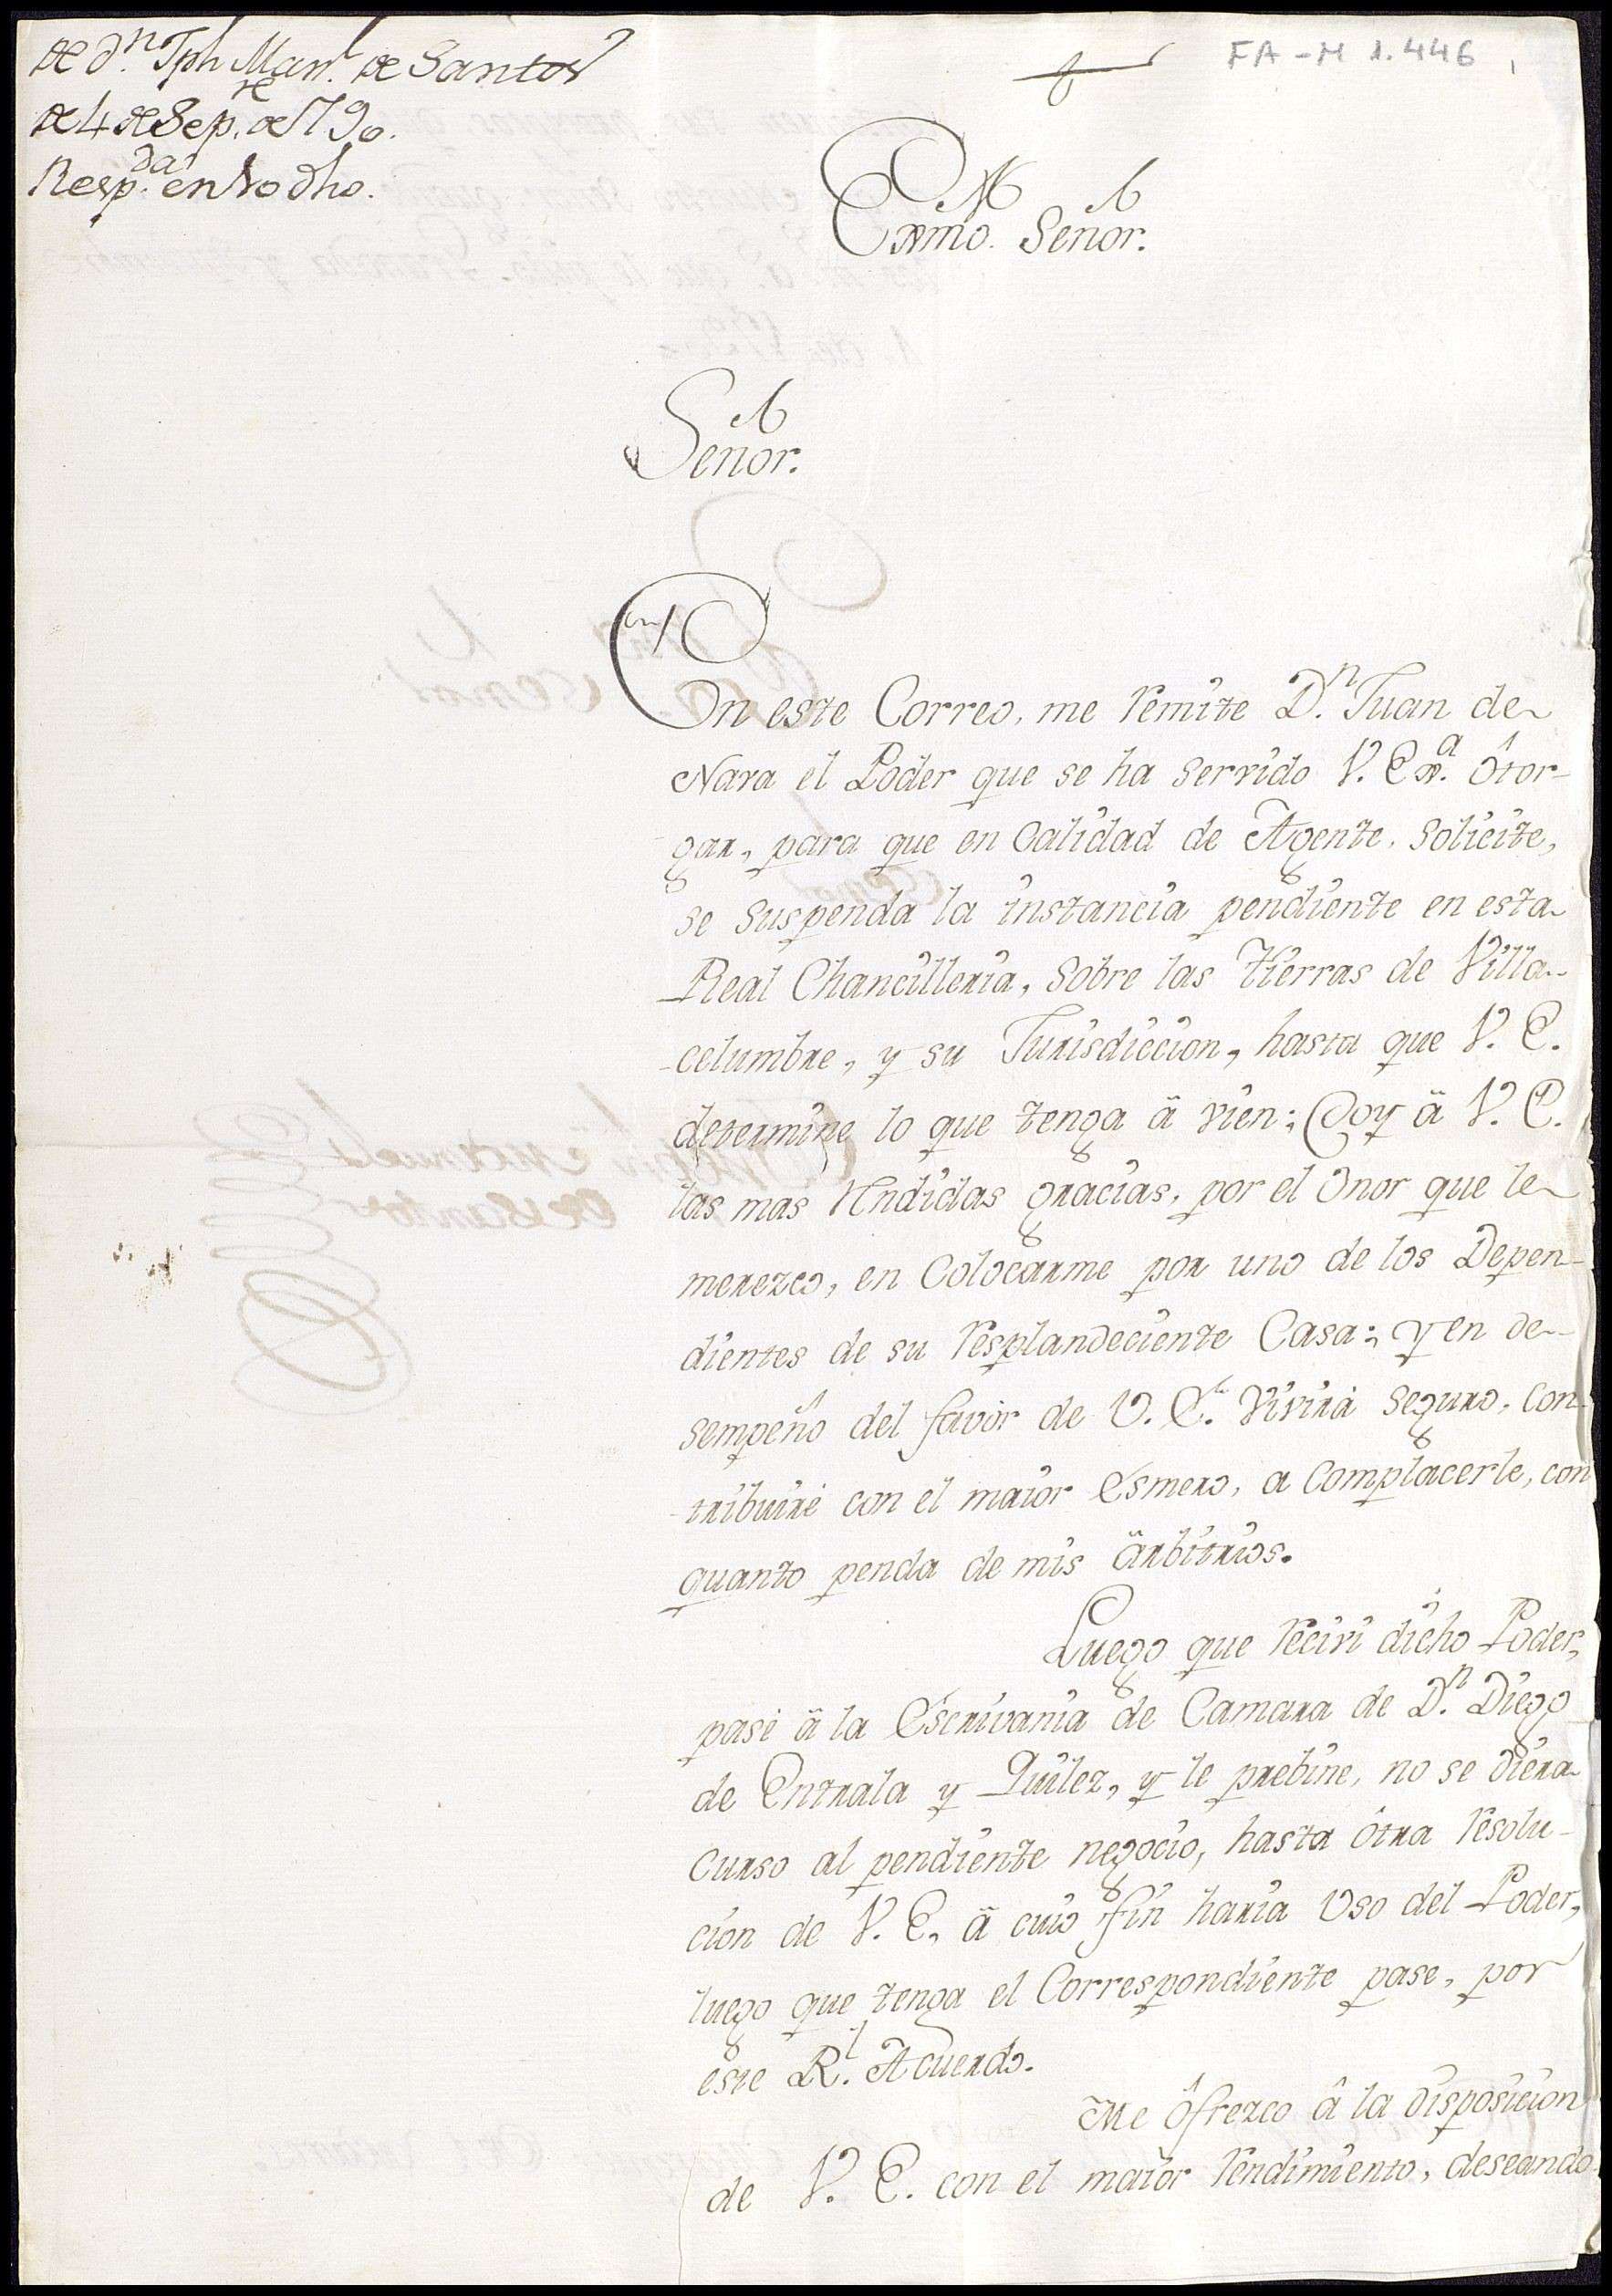 de dn. Jph Manl. de Santos
de 4 de Sepre. de 790.
Respda. en 10 dho.
FA-M 1.446
Exmo. Señor.
Señor.
En este Correo, me remite Dn. Juan de
Nara el Poder que se ha servido V. Exa. ôtor-
gar, para que en calidad de Agente, solicite,
se suspenda la instancia pendiente en esta
Real Chancilleria, sobre las tierras de Villa-
celumbre, y su Jurisdiccion, hasta que V. E.
determine lo que tenga â vien; Doy â V. E.
las mas rendidas gracias, por el onor que le
merezco, en colocarme por uno de los Depen-
dientes de su resplandeciente Casa; y en de-
sempeño del favor de V. E. vivirá seguro, con-
tribuiré con el maior esmero, a complacerle, con
quanto penda de mis ârbitrios.
Luego que reciví dicho Poder,
pasé â la Escrivania de Camara de Dn. Diego
de Entrala y Quilez, y le prebine, no se diera
curso al pendiente negocio, hasta ôtra resolu-
cion de V. E. â cuio fin haria uso del Poder,
luego que tenga el correspondiente pase, por
este Rl. Acuerdo.
Me ôfrezco â la disposicion
de V. E. con el maior rendimiento, deseando